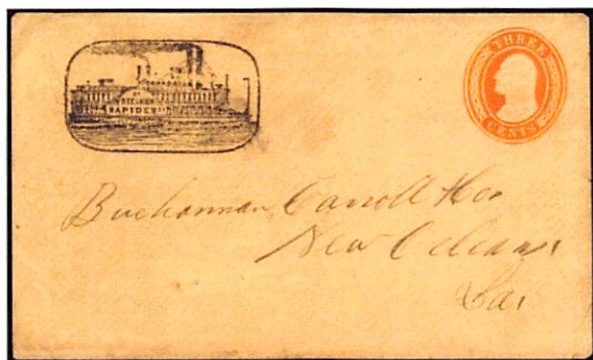 STEAMER
RAPIDES
THREE
CENTS
Buchannan, Carroll & Co
New Orleans
La.